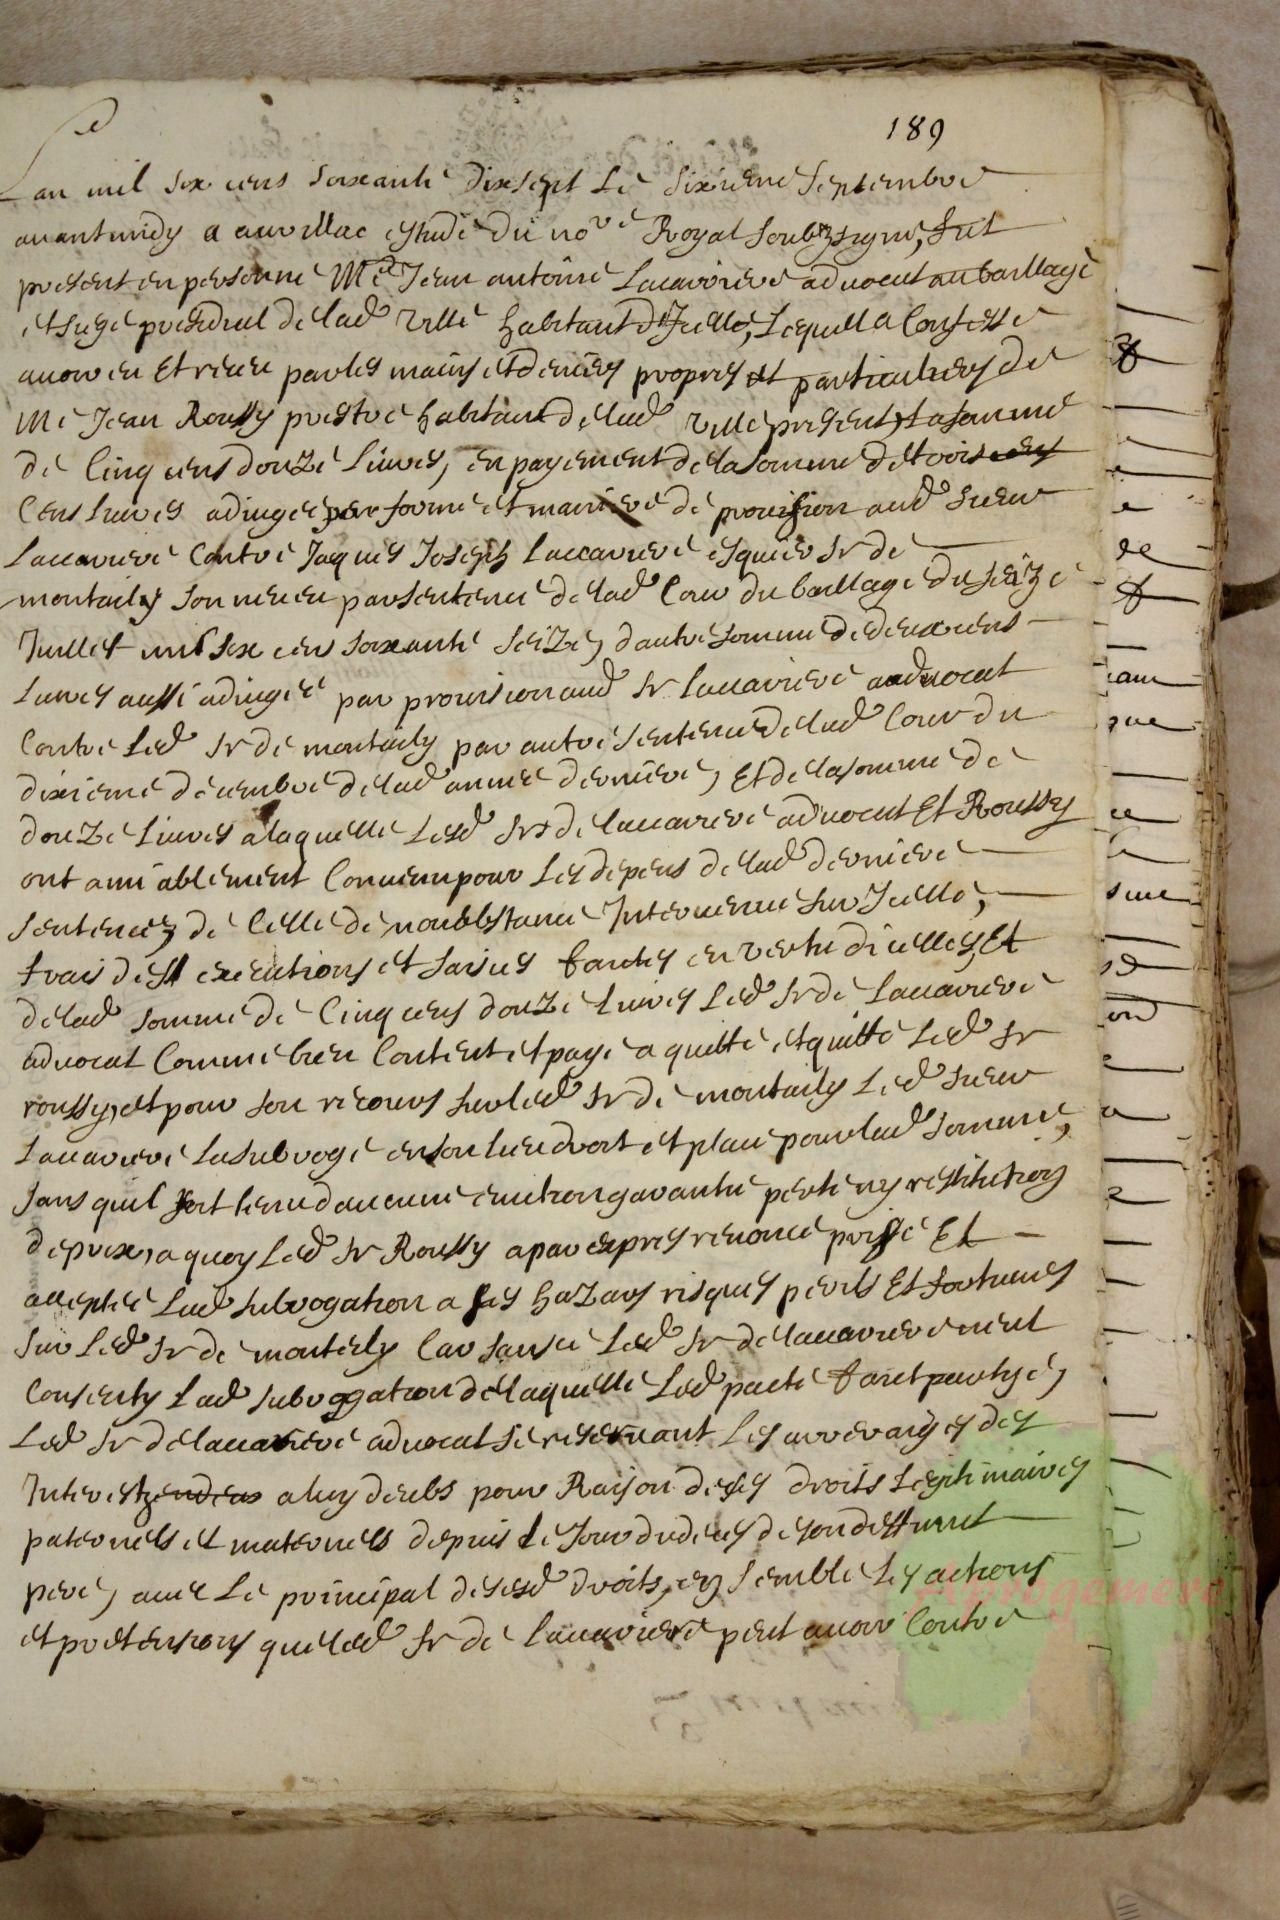 189
Lan mil six cens soixante dixsept le sixieme septembre
avant midy a aurillac estude du nore Royal soubzsigné, fut
present en personne Me Jean antoine Lacarriere advocat au baillage
et siege presidial de lad ville habitant dIcelle, Lequel a Confessé
avoir eu Et receu par les mains et deniers propres et particuliers de
Me Jean Roussy prestre habitant de lad ville present, La somme
de Cinq cens douze Livres, en payement de la somme de trois cens
Cens Livres adiugée par forme et maniere de provision aud sieur
Laccarriere Contre Jaques Joseph Laccarriere esquier sr de
montaily son neveu par sentence de lad Cour du baillage du seize
Juillet mil six cens soixante seize, dautre somme de deux cens
Livres aussi adiugée par provision aud sr Lacarriere advocat
Contre Led sr de montaily par autre sentence de lad Cour du
dixieme decembre de lad année derniere, Et de la somme de
douze Livres a laquelle Lesd srs de lacarriere advocat Et Roussy
ont amiablement Convenu pour Les depens de lad derniere
sentence, de Celle de nonobstance Intervenue sur Icelle,
frais des executions et saisies faites en vertu dicelles, Et
de lad somme de Cinq cens douze Livres Led sr de Lacarriere
advocat Comme bien Content et payé a quitté et quitte Led sr
roussy, et pour son recours sur led sr de montaily Led sieur
Lacarriere La subrogé en son lieu droit et place pour lad somme,
sans quil soit tenu daucune eviction garantie perte ny restitution
de prix, a quoy Led sr Roussy a par expres renoncé prise Et
acceptée Lad subrogation a ses hazars risques perils Et fortunes
sur Led sr de monteily Car sans ce Led sr de lacarriere neut
Consenty Lad subrogation de laquelle Led pacte fait partye,
Led sr de lacarriere advocat se reservant Les arrerages des
Interestz a luy deubs pour Raison de ses droits Legitimaires
paternels et maternels depuis le Jour du deces de son deffunct
pere, avec Le principal de sesd droits, ensemble Les actions
et pretensions que led sr de Lacarriere peut avoir Contre
Aprogemere